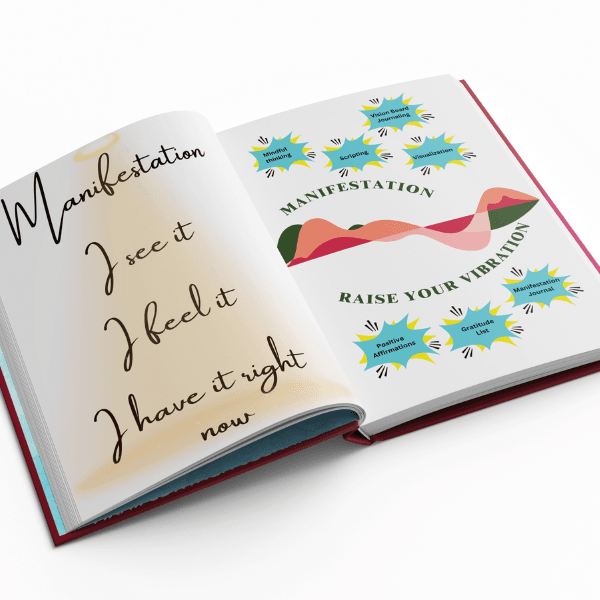 Manifestation
I see it
I feel it
I have it right
now
Vision Board
Journaling
Mindful
thinking
Scripting
Visualization
MANIFESTATION
RAISE YOUR VIBRATION
Manifestation
Journal
Gratitude
List
Positive
Affirmations